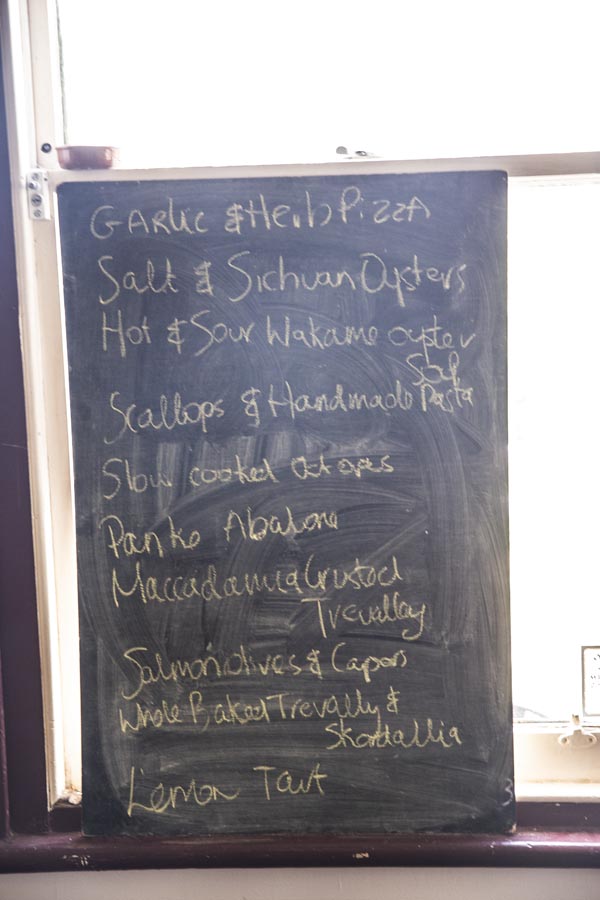 GARlic & Herb PizzA
Salt & Sichuan Oysters
Hot & Sour Wakame oyster
Soup
Scallops & Handmade Pasta
Slow cooked Octopus
Panko Abalone
Maccadamia Crusted
Trevalley
Salmon olives & Capers
Whole Baked Trevally &
Skordallia
Lemon Tart